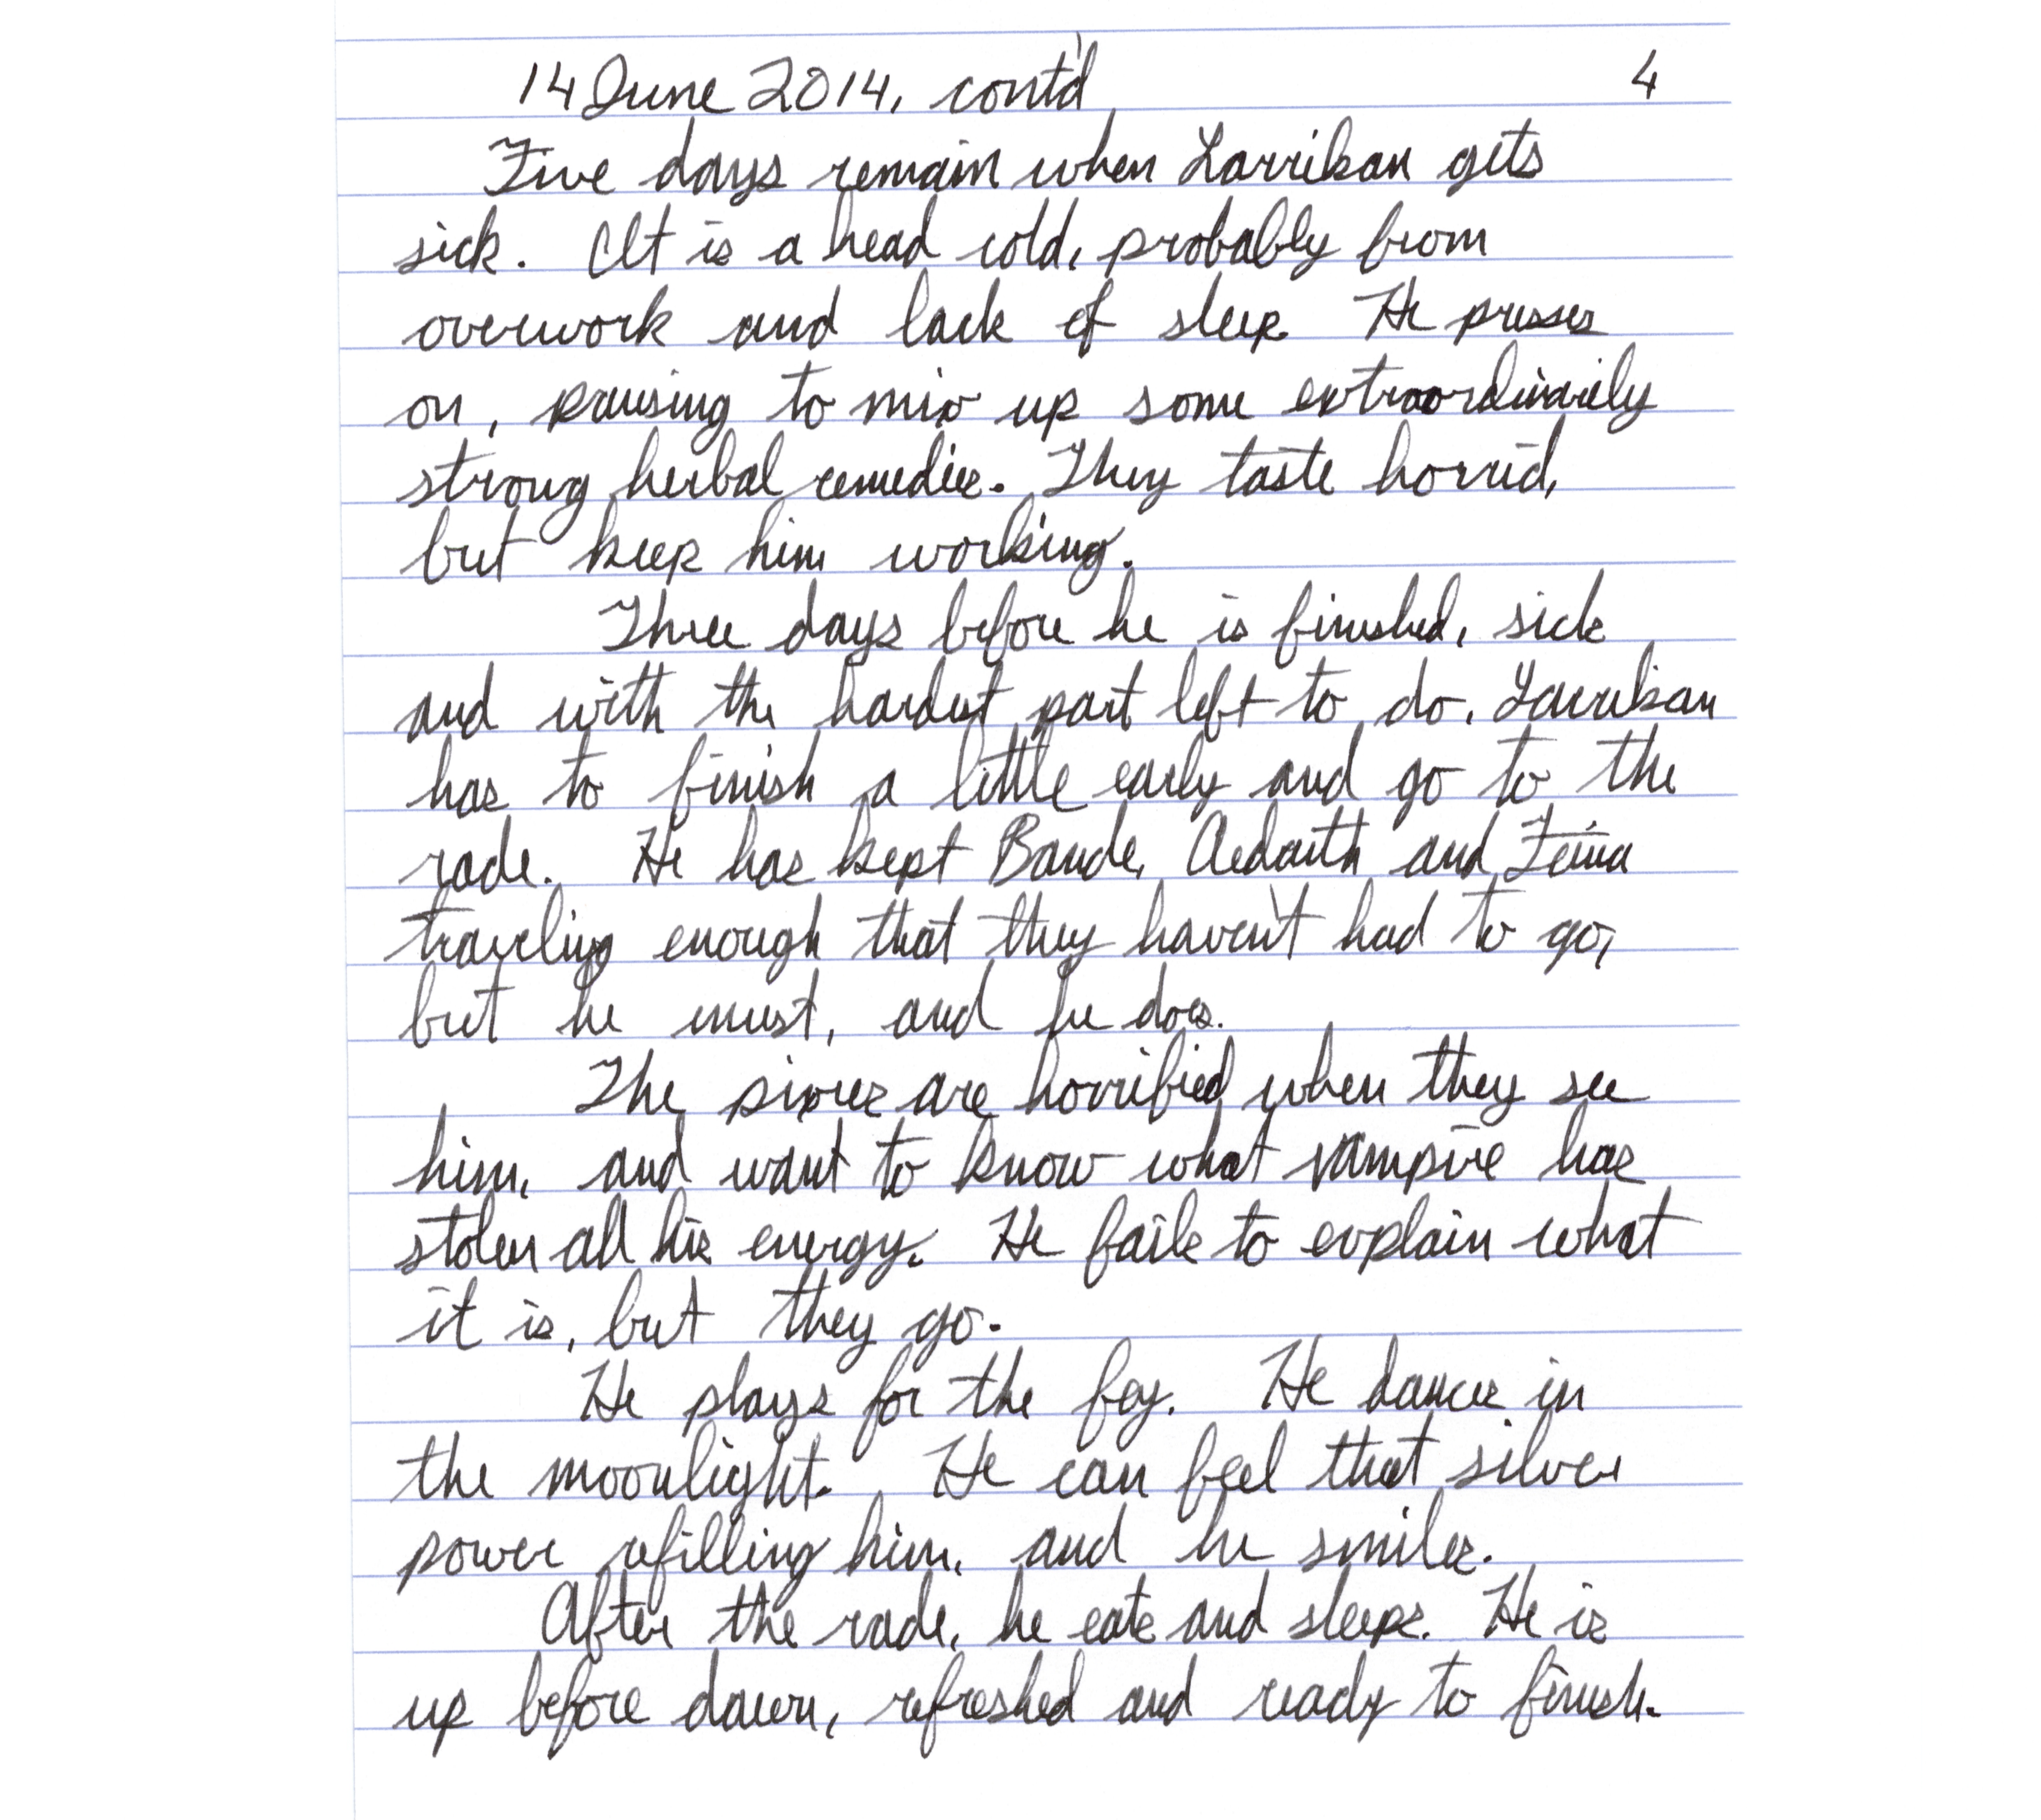 14 June 2014, cont'd 4
Five days remain when Larrikan gets
sick. It is a head cold, probably from
overwork and lack of sleep. He presses
on, pausing to mix up some extraordinarily
strong herbal remedies. They taste horrid,
but keep him working.
Three days before he is finished, sick
and with the hardest part left to do, Larrikan
has to finish a little early and go to the
rade. He has kept Baude, Aedaith and Feina
traveling enough that they haven't had to go,
but he must, and he does.
The pixies are horrified when they see
him, and want to know what vampire has
stolen all his energy. He fails to explain what
it is, but they go.
He plays for the fey. He dances in
the moonlight. He can feel that silver
power refilling him, and he smiles.
After the rade, he eats and sleeps. He is
up before dawn, refreshed and ready to finish.